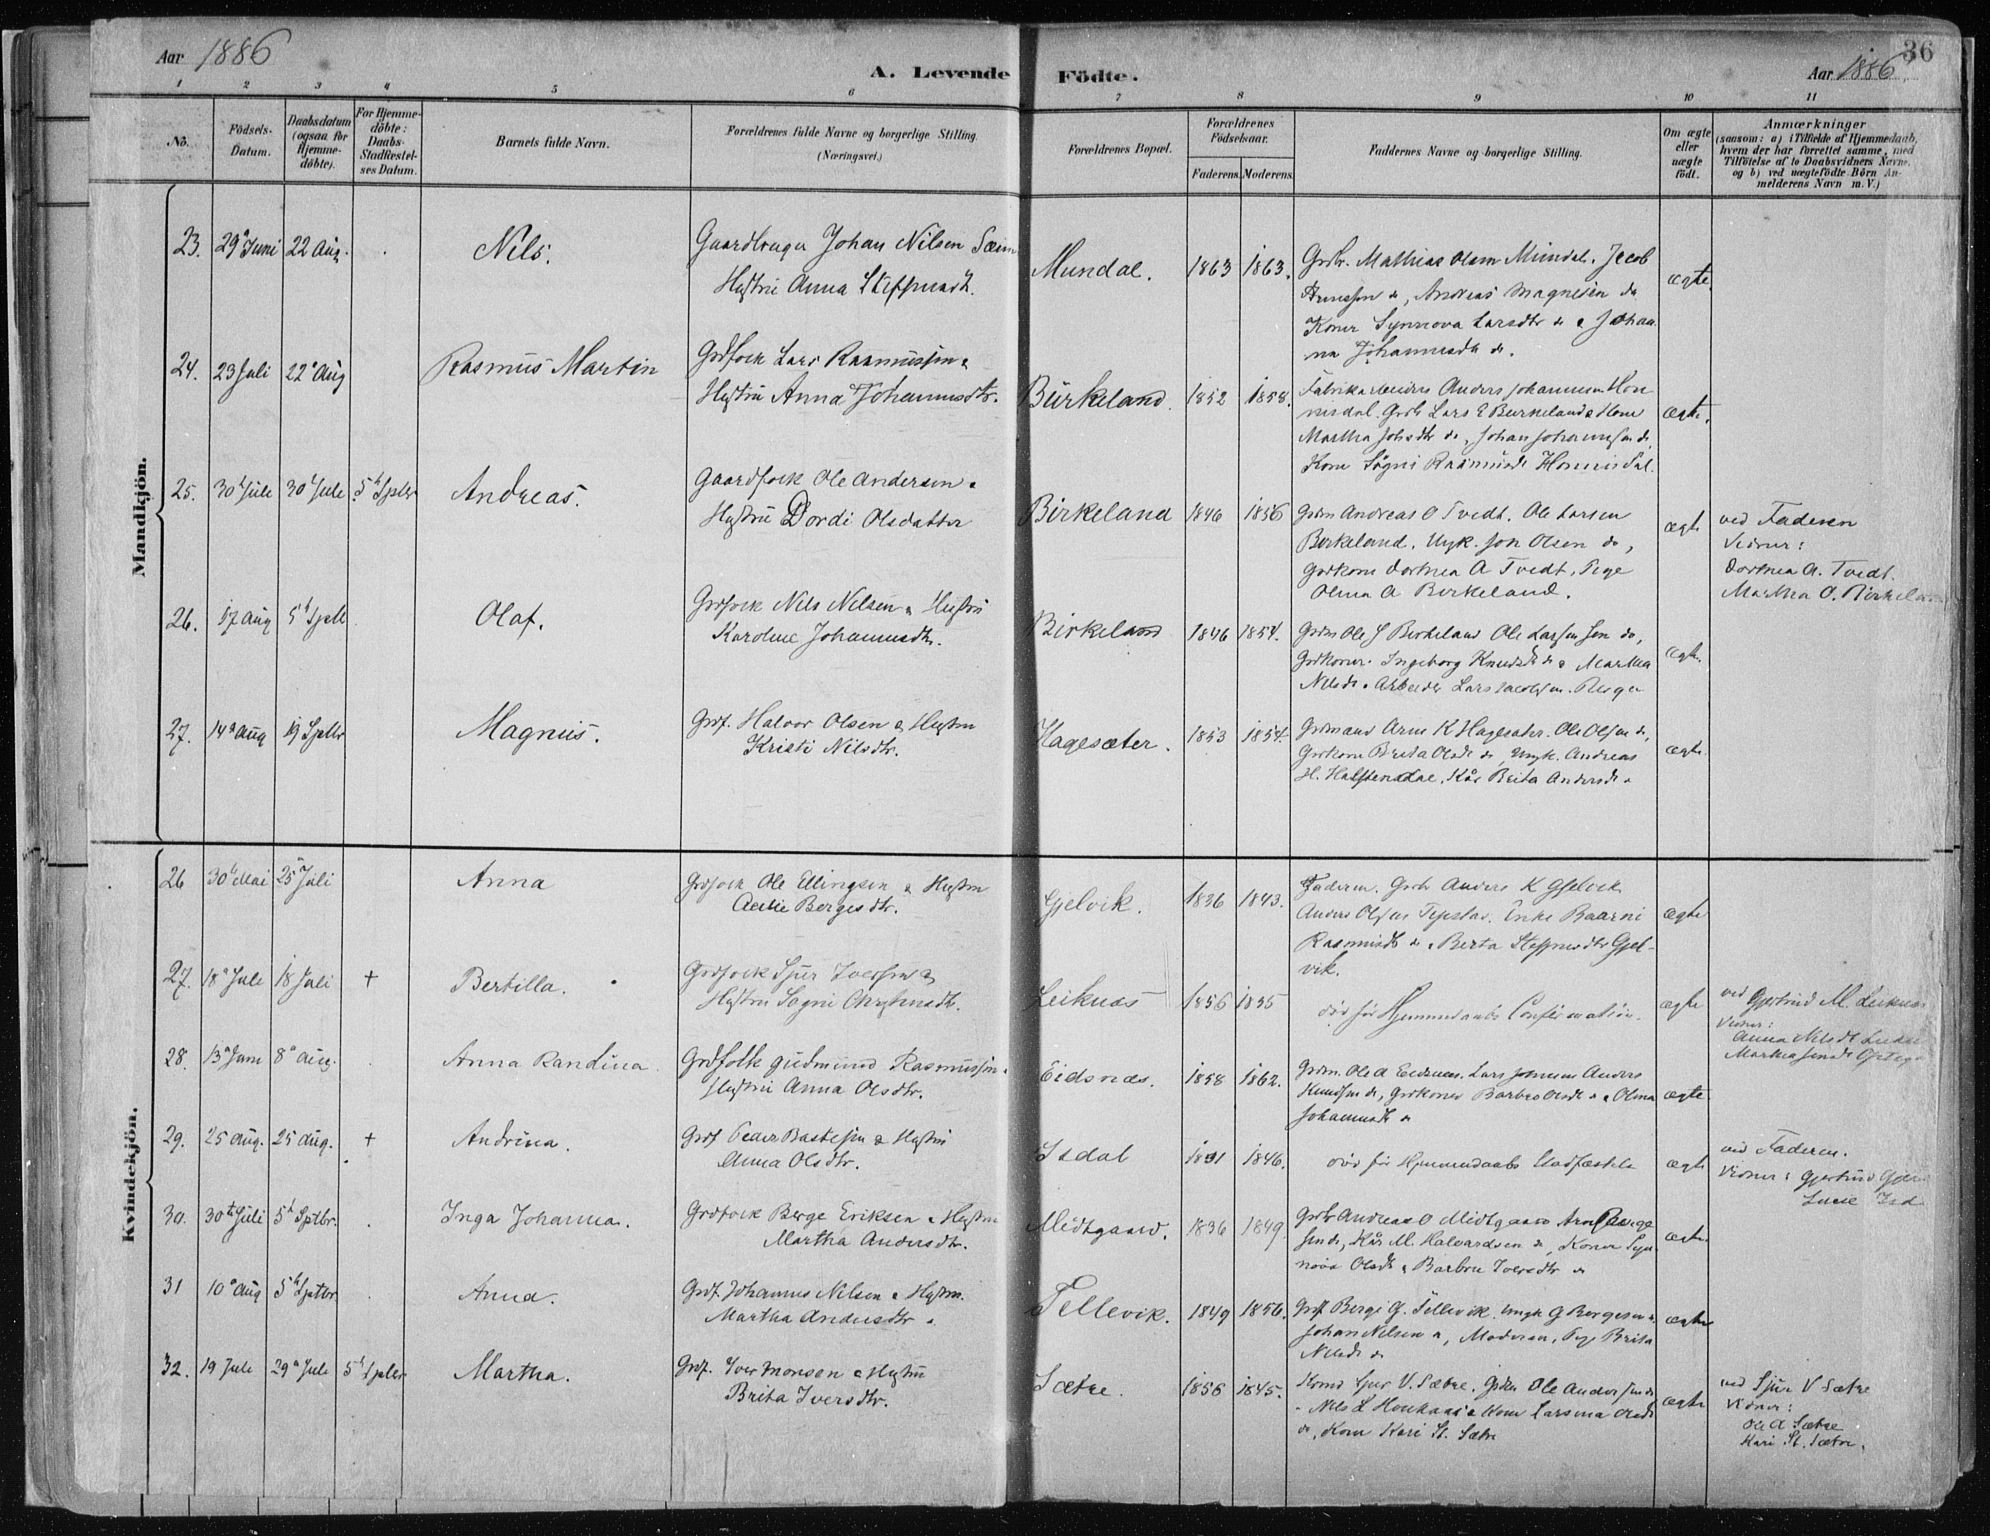 Aar 1886
A. Levende Födte.
Aar 1886
36
1 2 3 4 5 6 7 8 9 10 11
No.
Födsels-Datum.
Daabsdatum (ogsaa for Hjemme-döbte).
For Hjemme-döbte: Daabs-Stadfæstel-ses Datum.
Barnets fulde Navn.
Forældrenes fulde Navne og borgerlige Stilling.
(Næringsvei.)
Forældrenes Bopæl.
Forældrenes Födselsaar.
Faderens. Moderens.
Faddernes Navne og borgerlige Stilling.
Om ægte eller uægte födt.
Anmærkninger
(saasom: a) i Tilfælde af Hjemmedaab,
hvem der har forrettet samme, med
Tilföielse af to Daabsvidners Navne,
og b) ved uægtefödte Börn An-
melderens Navn m. V.)
Mandkjön.
23. 29 Juni 22 Aug. Nils. Gaardbruger Johan Nilsen Sæim Mundal. 1863 1863. Grdbr. Mathias Olsen Mundal. Jacob ægte.
Hustru Anna Steffensdt. Andreas Magnesen do
Koner Synnova Larsdtr do & Johan
na Johannesdt do.
24. 23 Juli 22 Aug Rasmus Martin Grdfolk Lars Rasmussen & Birkeland. 1852 1858. Fabrikarbeider Anders Johannesen Hon ægte.
Hustru Anna Johannesdtr. Grdbr Lars E Birkeland & Kone
Martha Johsdtr do, Johan Johannesen do,
Kone Sögni Rasmusdt
25. 30 Juli 30 Juli 5 Sptbr Andreas. Gaardfolk Ole Andersen & Birkeland 1846 1856 Grdm Andreas O Tvedt. Ole Larsen ægte ved Faderen
Hustru Dordi Olsdatter Birkeland, Ungk. Jon Olsen do, Vidner:
Grdkone Dorthea A Tvedt, Pige Dorthea A. Tvedt.
Olina A Birkeland. Martha O. Birkeland
26. 17 Aug 5 Sptb Olaf. Grdfolk Nils Nilsen & Hustru Birkeland 1846 1854. Grdm Ole J Birkeland Ole Larsen do, ægte.
Karoline Johannesdtr. Grdkoner Ingeborg Knudsdt do & Martha
Nilsdt. Arbeider Lars Jacobsen. Bergen
27. 14 Aug 19 Sptbr Magnus. Grdf. Halvor Olsen & Hustru Hagesæter. 1853 1854. Grdmand Arne K Hagesæter. Ole Olsen do, ægte
Kristi Nilsdtr. Grdkone Brita Olsdt do, Ungk. Andreas
H. Halstendal, Kår Brita Andersdt
Kvindekjön.
26 30 Mai 25 Juli Anna Grdfolk Ole Ellingsen & Hustru Gjelvik. 1836 1843. Faderen. Grdbr Anders K Gjelvik ægte
Bergesdtr. Anders Olsen Enke
Rasmusdt do, Berta Steffensdtr Gjel-
vik.
27. 18 Juli 18 Juli + Bertilla. Grdfolk Sjur Iversen & Leiknæs 1856 1835 död för Hjemmedaabs Confirmation. ægte ved Gjertrud M. Leiknæs
Hustru Sogni Vidner:
Anna Nilsdt
28. 13 Juni 8 Aug. Anna Randina. Grdfolk Gudmund Rasmussen & Eidsnæs. 1858 1862. Grdm. Ole A Eidsnes. Lars Anders ægte
Hustru Anna Olsdtr. Knudsen do, Grdkoner Barbro Olsdt do & Olina
Johannesdt do
29. 25 Aug. 25 Aug. + Andrina. Grdf Peder & Hustru Isdal 1846. död för Hjemmedaabs Stadfæstelse ægte ved Faderen.
Anna Olsdtr. Vidner: Gjertrud
30. 30 Juli 5 Sptbr. Inga Johanna. Grdfolk Berge Eriksen & Hustru Midtgaard. 1836 1849 Grdbr Andreas O Midtgaard Arne Berge ægte.
Martha Andersdtr. sen do, Kår M. Halvardsen do, Koner Syn
növa Olsdt & Barbru Iversdtr do
31 10 Aug 5 Sptbr Anna. Grdf. Johannes Nilsen & Hustru Tellevik. 1849 1856. Grdf. Berge G. Tellevik. Ungk G Bergesen do, ægte
Martha Andersdtr. Johan Nilsen do, Moderen, Pige Brita
Nilsdt do
32. 19 Juli 29 Juli 5 Sptbr Martha. Grdf. Iver Monsen & Hustru Sætre. 1856 1845. Sjur V. Sætre, Ole Andersen do ægte ved Sjur V Sætre
Brita Iversdtr. Nils L & Kone Vidner:
do, Kone Kari St. Sætre Ole A Sætre
Kari St. Sætre.